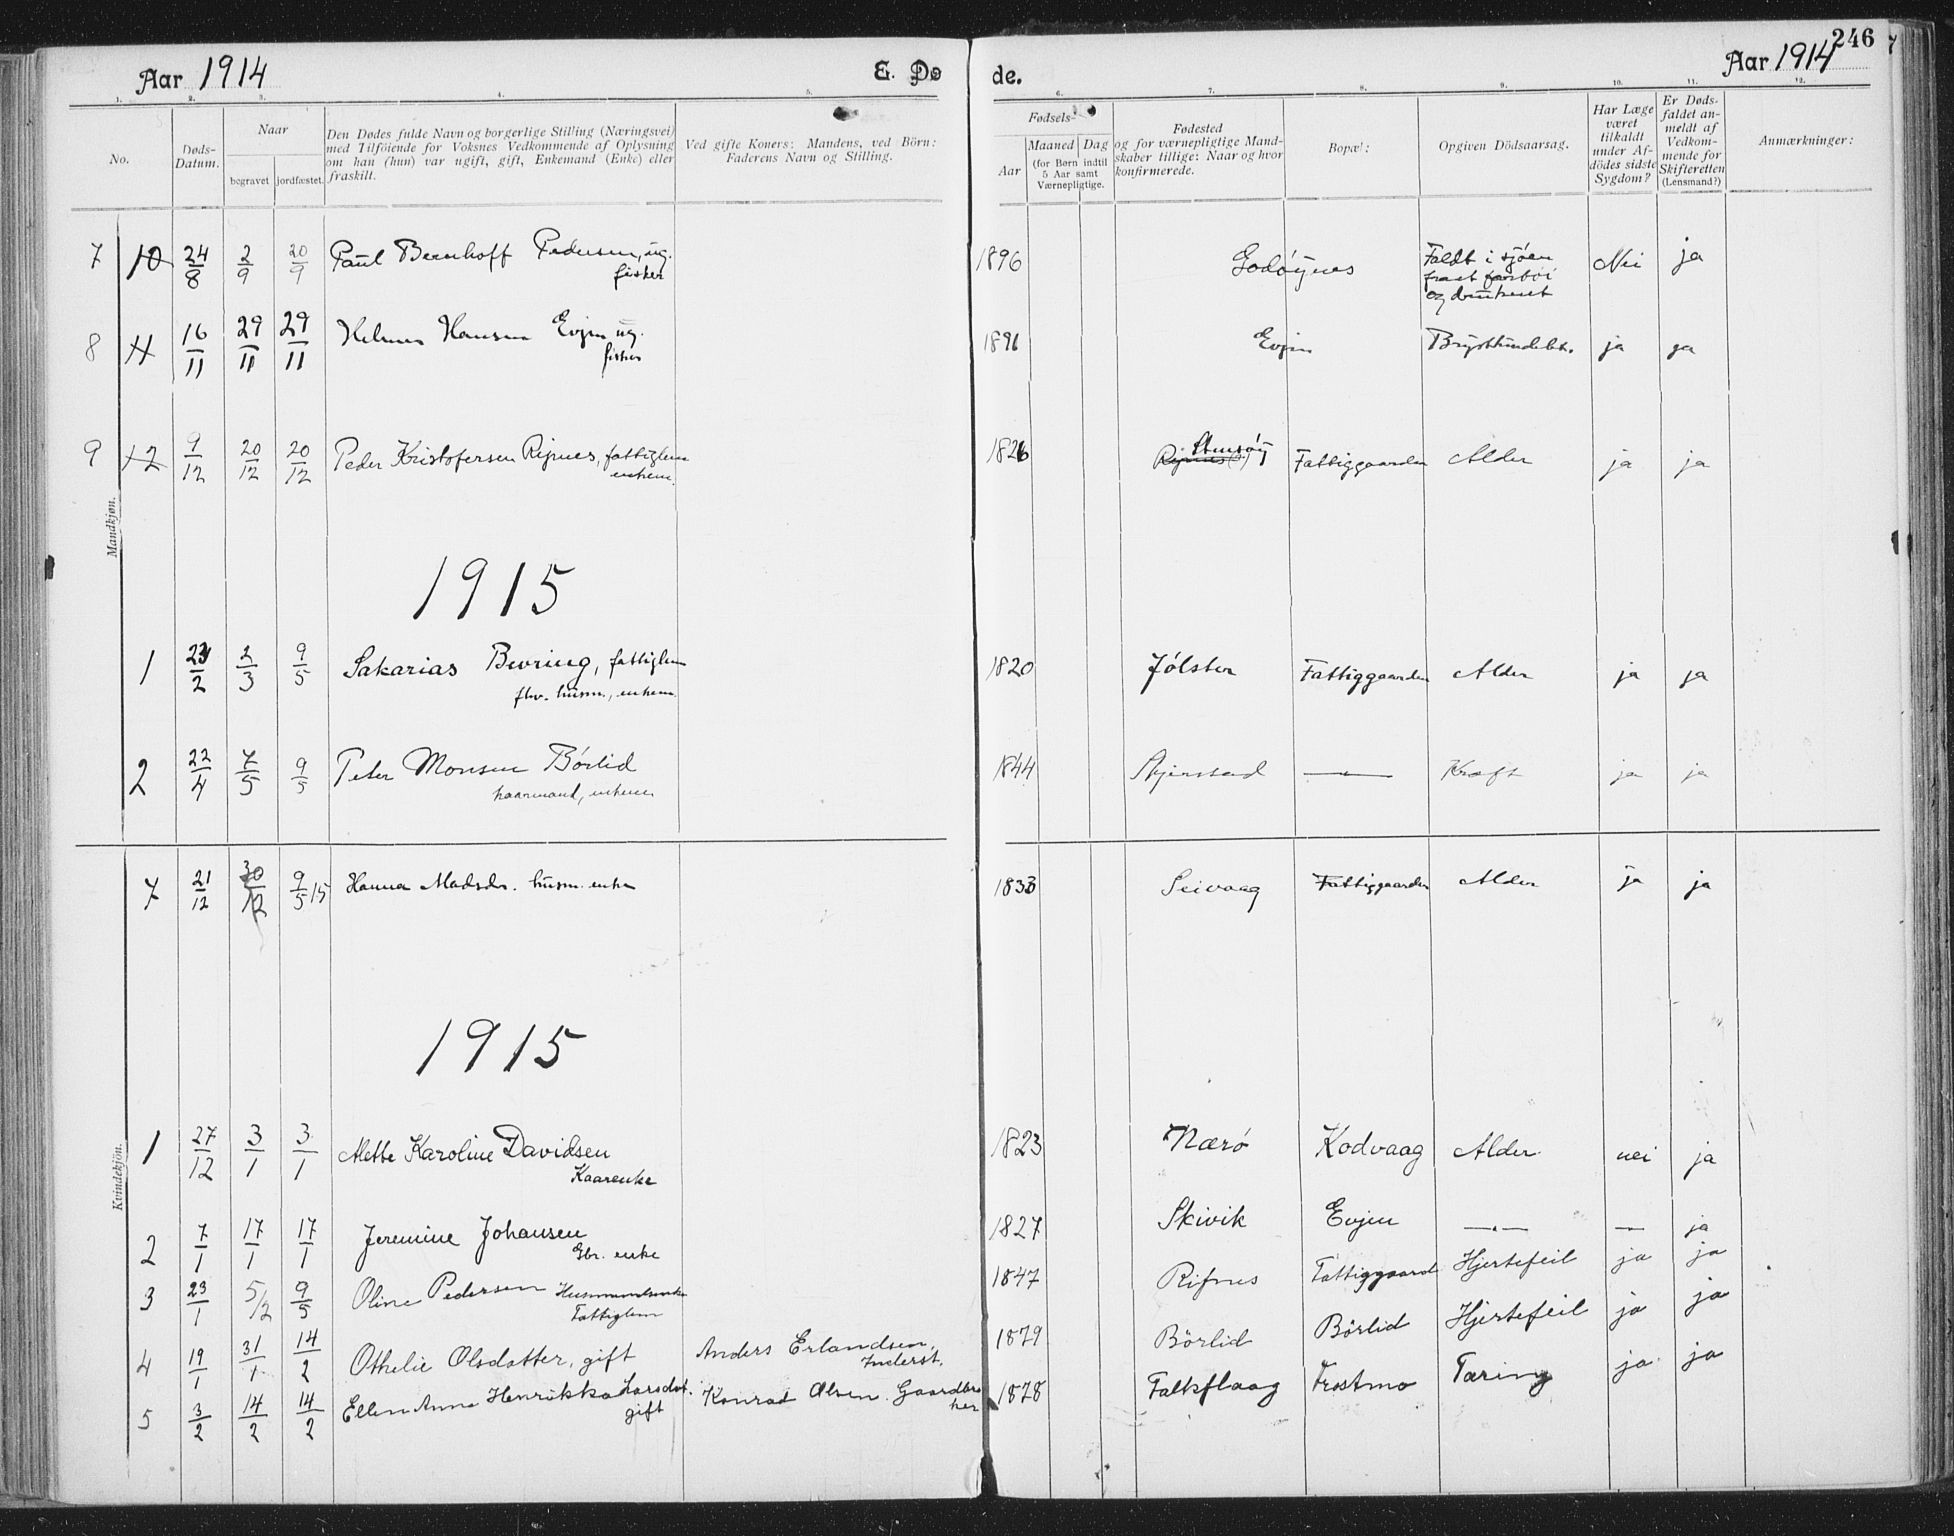 Aar 1914
E. Døde.
Aar 1914
246
1. 2. 3. 4. 5. 6. 7. 8. 9. 10. 11. 12.
No.
Døds-
Datum.
Naar
begravet
jordfæstet.
Den Dødes fulde Navn og borgerlige Stilling (Næringsvei)
med Tilföiende for Voksnes Vedkommende af Oplysning
om han (hun) var ugift, gift, Enkemand (Enke) eller
fraskilt.
Ved gifte Koners: Mandens, ved Börn:
Faderens Navn og Stilling.
Fødsels-
Aar
Maaned
Dag
(for Børn indtil
5 Aar samt
Værnepligtige.
Fødested
og for værnepligtige Mand-
skaber tillige: Naar og hvor
konfirmerede.
Bopæl:
Opgiven Dödsaarsag.
Har Læge
været
tilkaldt
under Af-
dödes sidste
Sygdom?
Er Døds-
faldet an-
meldt af
Vedkom-
mende for
Skifteretten
(Lensmand?)
Anmærkninger:
Mandkjøn.
7 10 24/8 2/9 20/9 Paul Bernhoff Pedersen, ug. 1896 Godøynes Faldt i sjøen Nei ja
fisker
og druknet
8 11 16/11 29/11 29/11 Hansen Evjen ug. 1891 Evjen ja ja
fisker
9 12 9/12 20/12 20/12 Peder Kristofersen Rijnes, fattiglem 1826 Fattiggaarden Alder ja ja
enkem.
1915
1 23/2 2/3 9/5 Sakarias Bevring, fattiglem 1820 Jølster Fattiggaarden Alder ja ja
fhv. husm., enkem.
2 22/4 7/5 9/5 Peter Monsen Börlid 1844 Skjerstad — Kræft ja ja
kaarmand, enkem
Kvindekjön.
7 21/12 30/12 9/5 15 Hanna Madsdr. husm. enke 1833 Seivaag Fattiggaarden Alder ja ja
1915
1 27/12 3/1 3/1 Mette Karoline Davidsen 1823 Nærø Kodvaag Alder nei ja
Kaarenke
2 7/1 17/1 17/1 Jeremine Johansen 1827 Skivik Evjen —"— — ja
Gbr. enke
3 23/1 5/2 9/5 Oline Pedersen Husmandsenke 1847 Rifnes Fattiggaard Hjertefeil ja ja
Fattiglem
4 19/1 31/1 14/2 Othelie Olsdatter, gift Anders Erlandsen, 1879 Börlid Börlid Hjertefeil ja ja
Inderst.
5 3/2 14/2 14/2 Ellen Anna Henrikka Larsdat. Konrad Olsen Gaardbru 1878 Falkflaag Frostmo Tæring ja ja
gift
ker